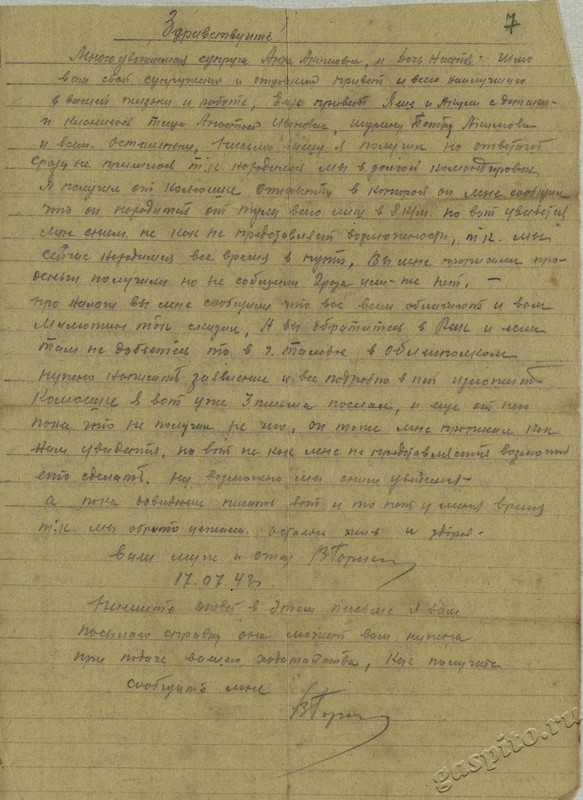 7
Здравствуйте
Многоуважаемая супруга Анна Акимовна, и дочь Настя! Шлю
вам свой супружеский и отцовский привет и всего наилучшего
в вашей жизни и работе, еще привет Яше и с детьми
и кланяюсь теща Анастасия Ивановна, шурину Петру Акимович
и всем остальным, письмо вашу я получил но ответить
сразу не пришлось т.к. находился мы в долгой командировке
Я получил от Колюшки открытку в которой он мне сообщил
что он находится от Тулы всего лишь в 8 км. но вот увидется
мне сним не как не представляет возможности, т.к. мы
сейчас находимся все время в пути, Вы мне прописали про
деньги получили но не сообщили 2 раза или же нет, –
про налоги вы мне сообщили что вас всем облагают и вам
так сказал, А вы обратитесь в Рик и если
там не добьетесь то в г. в Облисполком
нужно написать заявление и все подробно в ней изложить
Колюшке я вот уже 3 письма послал, и еще от него
пока что не получил не чего, он тоже мне прописал как
нам увидется, но вот не как мне не представляется возможно
это сделать. ну возможно мы сним увидемся –
а пока досвидения писать вот и то нет у меня время
т.к. мы обратно уезжаем остаюсь жив и здоров.
Ваш муж и отец В Горох
17.07.43г.
Пишите ответ в этом письме я вам
посылаю справку она может вам нужна
при подаче вашего ходатайства, Как получите
сообщить мне
В Горох
gaspito.ru